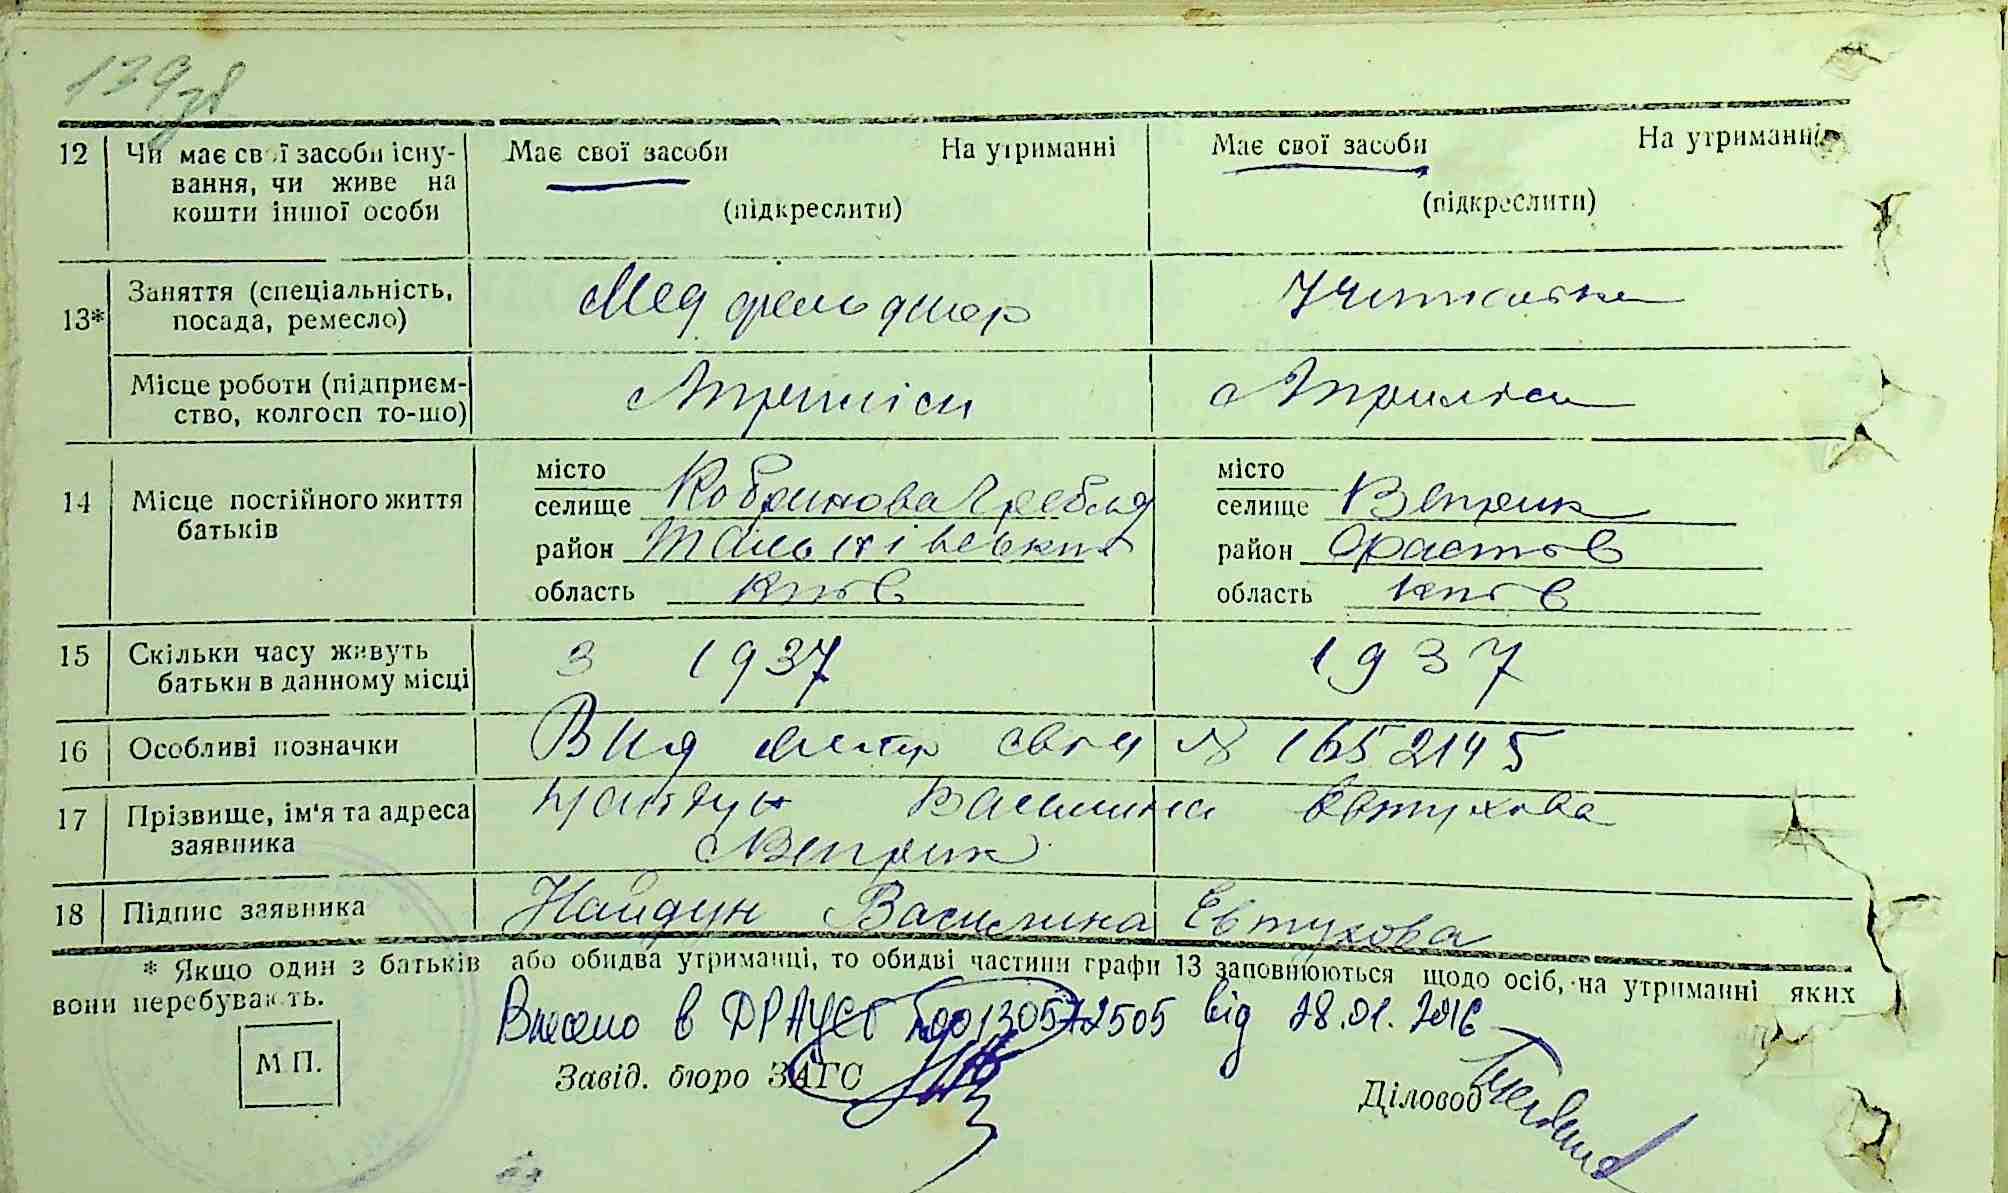 139зв
12 Чи має свої засоби існу- Має свої засоби На утриманні Має свої засоби На утриманні
вання, чи живе на
кошти іншої особи (підкреслити) (підкреслити)
13* Заняття (спеціальність, Мед фельдшер Учителька
посада, ремесло)
Місце роботи (підприєм-
ство, колгосп то-що)
14 Місце постійного життя
батьків
місто місто
селище Кобринова Гребля селище Веприк
район Тальнівський район Фастов
область Київ область Київ
15 Скільки часу живуть З 1937 1937
батьки в данному місці
16 Особливі позначки Вид № 1652145
17 Прізвище, ім'я та адреса Найдун Василина Евтухова
заявника Веприк
18 Підпис заявника Найдун Василина Евтухова
* Якщо один з батьків або обидва утриманці, то обидві частини графи 13 заповнюються щодо осіб, на утриманні яких
вони перебувають.
Внесено в ДРАЦСГ 00130572505 від 28.01.2016
М П. Завід. бюро ЗАГС Діловод